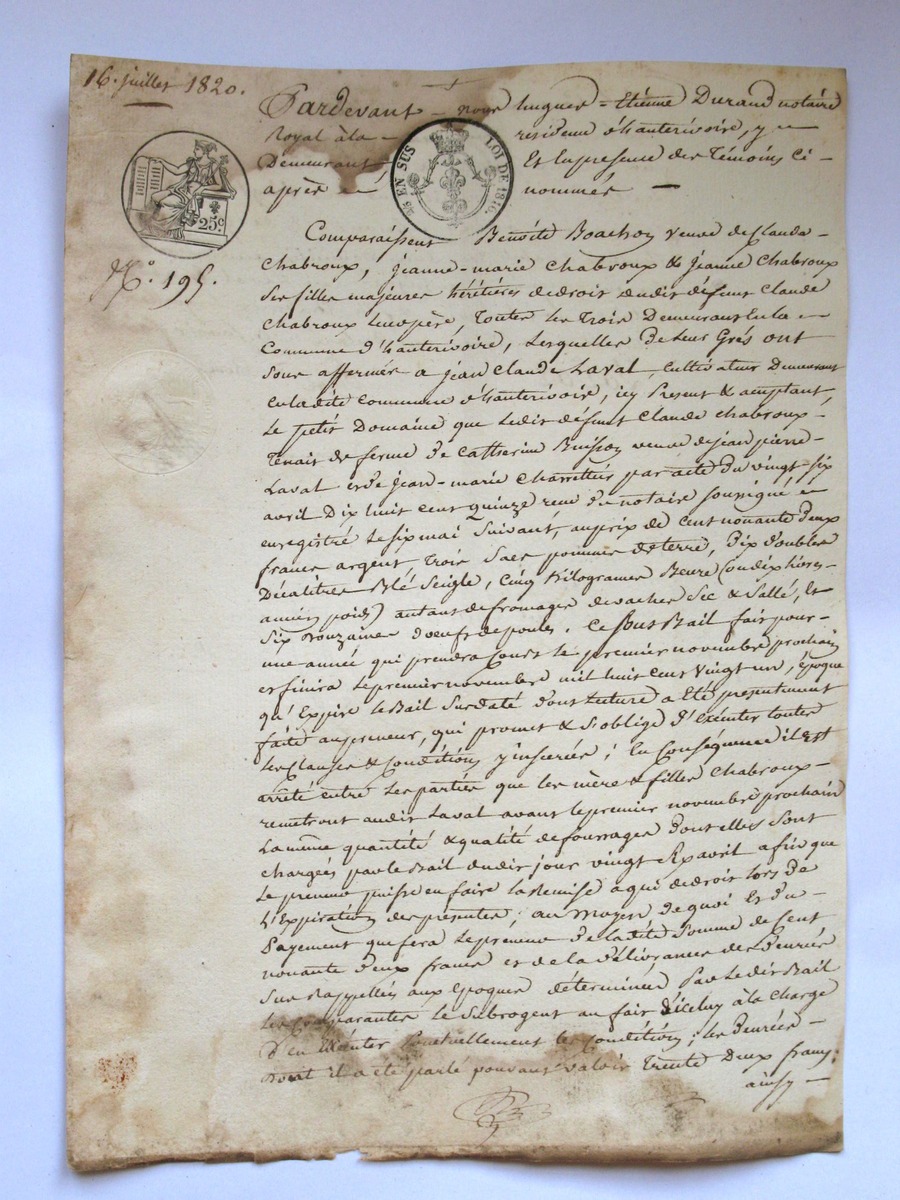 16. juillet 1820.
Pardevant - nous hugues - Etienne Durand notaire
Royal à la - residence d'hauterivoire, y -
Demeurant Et en presence des Témoins Ci -
après - nommés -
EN SUS LOI DE 1816.
25c
N.° 195.
Comparaissent Benoite Boachon veuve de Claude -
Chabroux, jeanne-marie Chabroux & jeanne Chabroux
Ses filles majeures héritières de droit dudit défunt Claude
Chabroux leur père, Toutes les Trois Demeurant en la -
Commune d'hauterivoire, Lesquelles De Leur Grés ont
Sous affermés a jean Claude Laval Cultivateur Demeurant
en la dite Commune d'hauterivoire, icy Present & acceptant,
Le petit Domaine que Ledit défunt Claude Chabroux -
Tenait de ferme De Catherine Buisson veuve de jean pierre -
Laval et de jean-marie par acte du vingt-six
avril Dix huit cent Quinze reçu du notaire soussigné et
enregistré Le six mai Suivant, au prix de Cent nonante Deux
francs argent, Trois Sacs pommes de terre, Dix Doubles
Décalitres Blé Seigle, Cinq Kilogrames Beure (ou dix livres -
ancien poids) autant de fromages de vaches Sec & Sallé, Et
Six Douzaines d'oeufs de poules. Ce Sous Bail fait pour -
une année qui prendra Cours Le premier novembre prochain
et finira Le premier novembre mil huit Cent vingt un, époque
qu'Expire Le Bail Sus daté dont Lecture a Eté présentement
faite au preneur, qui promet & S'oblige d'Exécuter toutes
Les Clauses & Conditions y inserées ; En Conséquence il Est
arrêté entre Les parties que les mère & filles Chabroux -
remettront audit Laval avant Le premier novembre prochain
La même quantité & qualité de fourrages Dont elles Sont
chargées par le Bail dudit jour vingt Six avril afin que
Le preneur puisse en faire La Remise a qui de droit lors de
L'Expiration des présentes ; au moyen de quoi Et du -
Payement que fera Le preneur De la dite Somme de Cent
nonante Deux francs et de la Délivrance des Denrées
Sus Rappellés aux époques déterminées Par Le dit Bail
Les Comparantes Le Subrogent au fait D'iceluy à la Charge
D'en Exécuter Ponctuellement les Conditions ; les Denrées -
Dont il a été parlé pouvant valoir Trente Deux francs
ainsy -